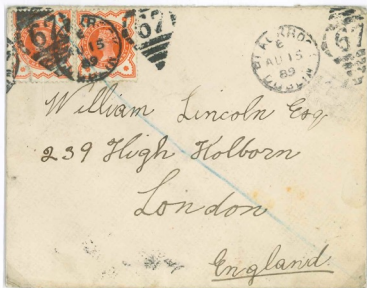 67
67
67
AU 15
89
E
AU 15
89
DUBLIN
William Lincoln Esq
239 High Holborn
London
England.